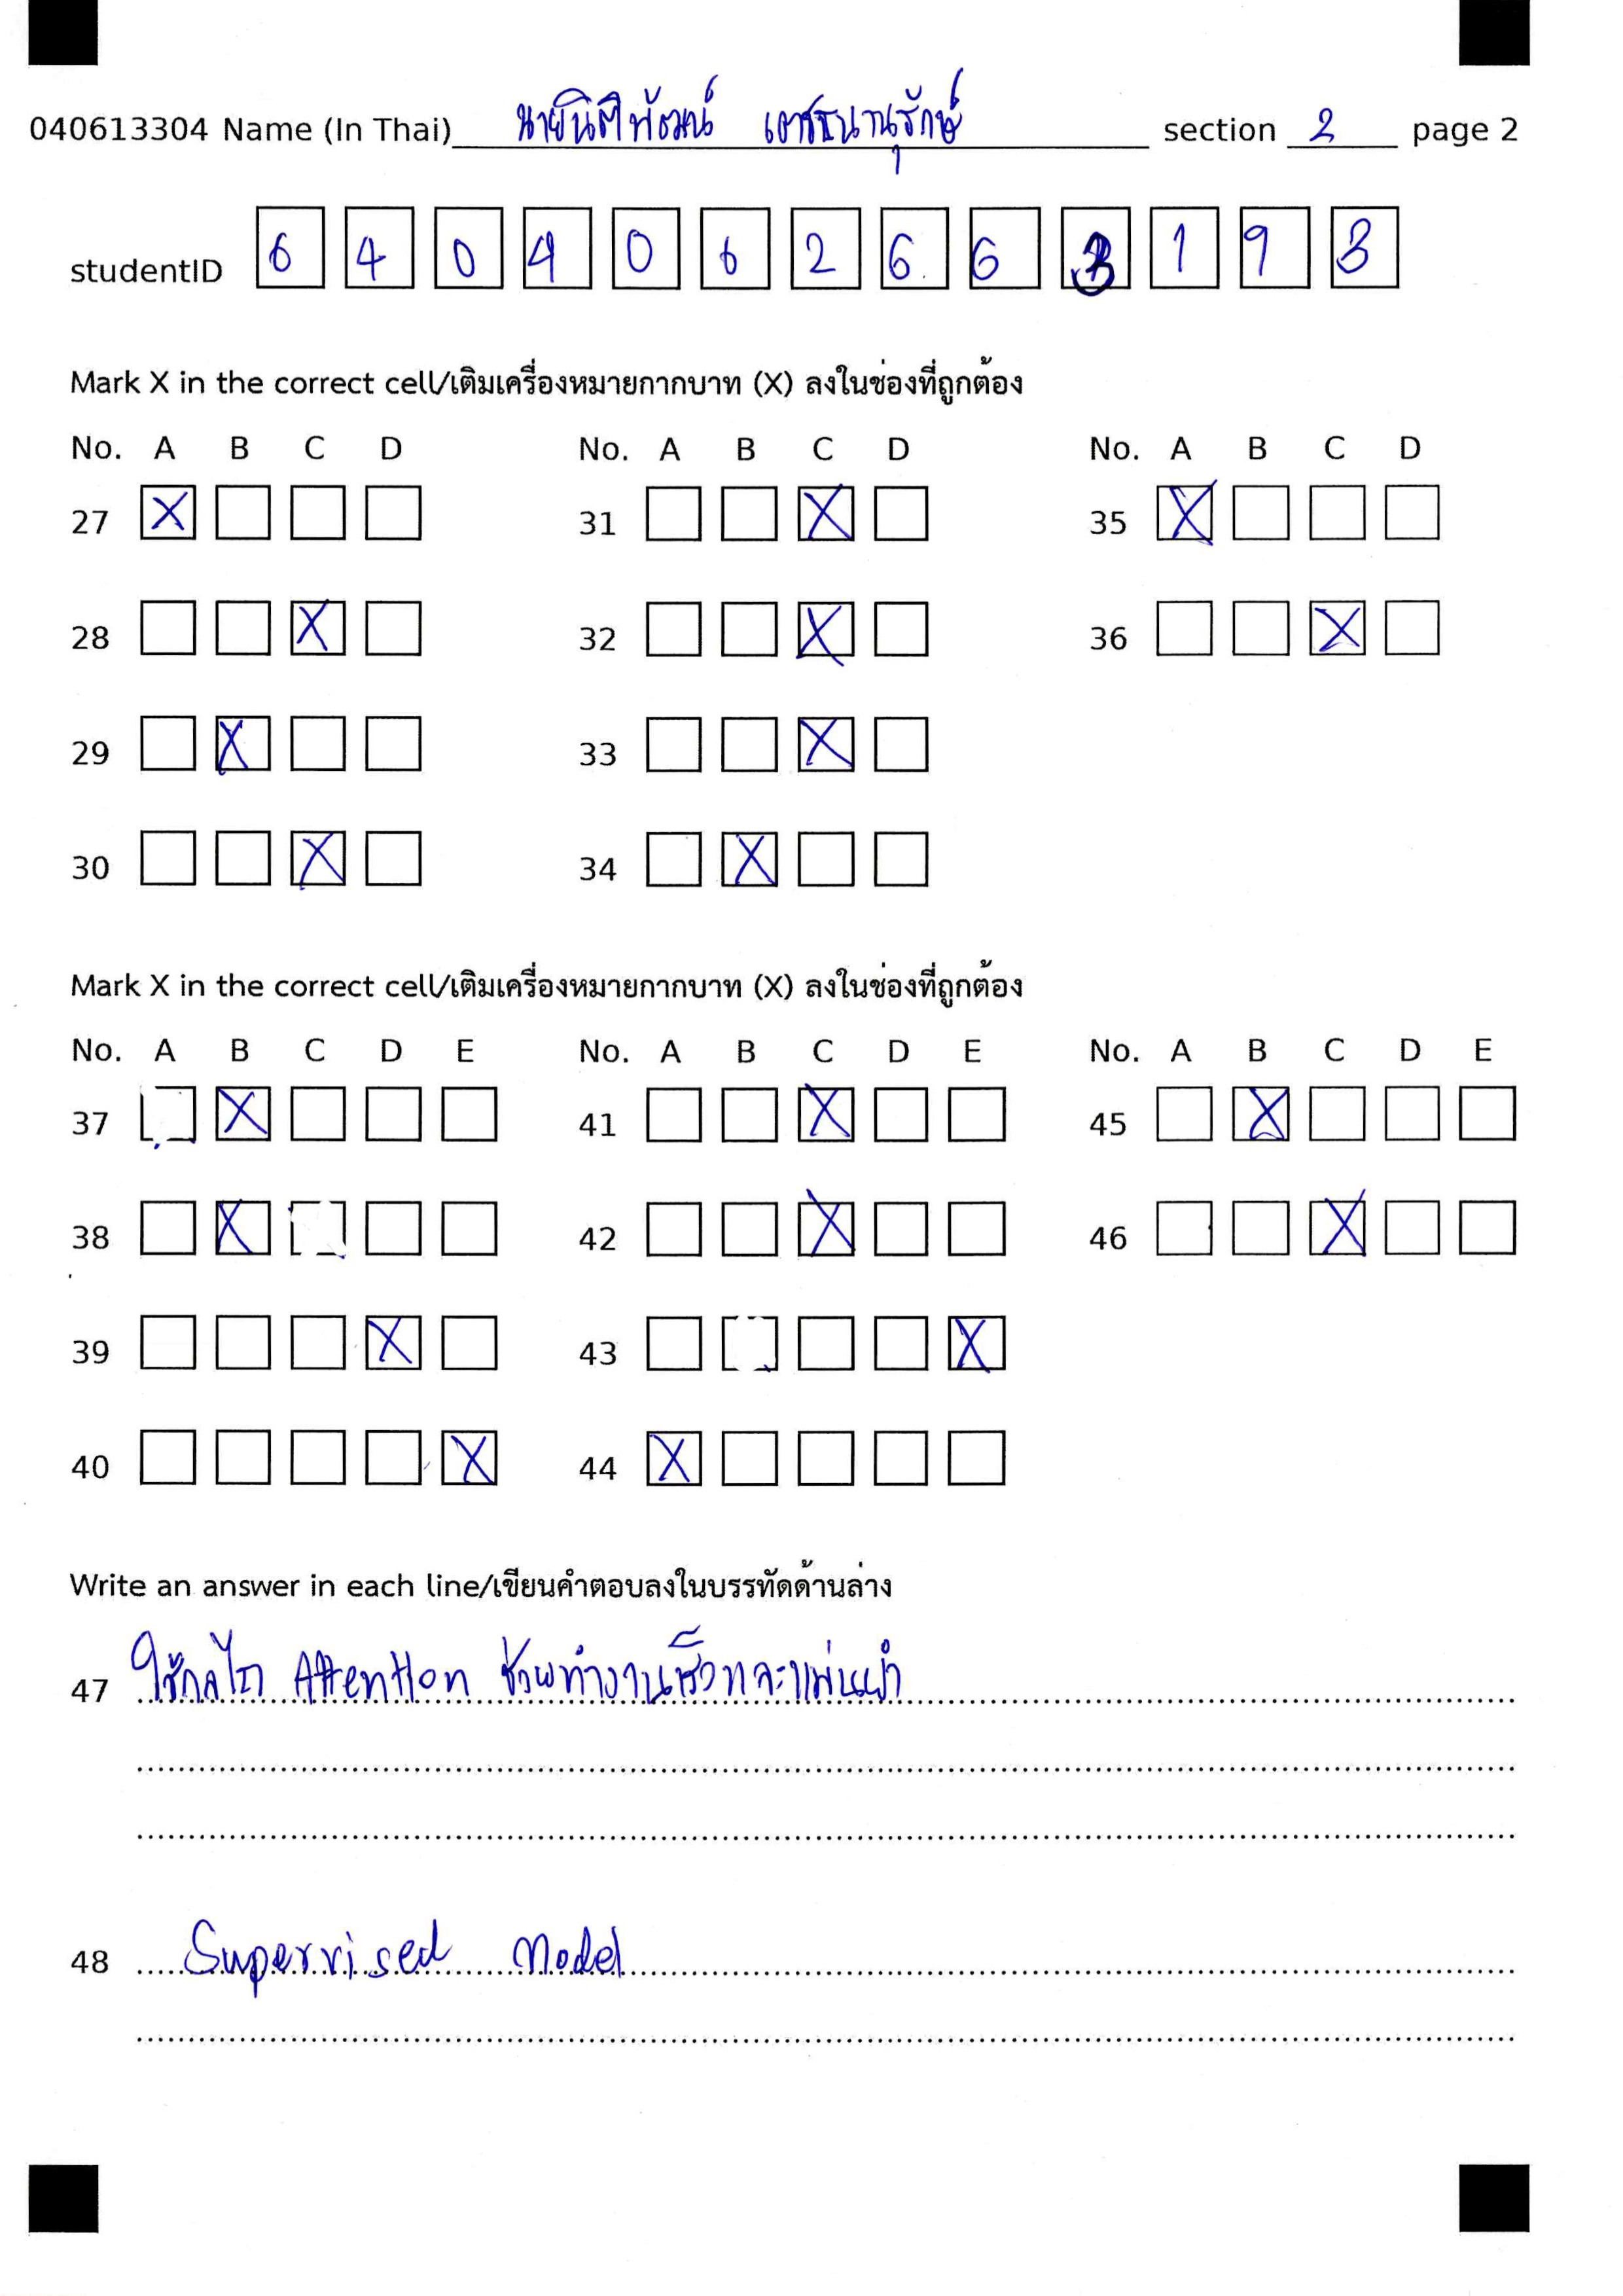 040613304 Name (In Thai) นายนิติพัฒน์ section 2 page 2
studentID 6 4 0 4 0 6 2 6 6 3 1 9 3
Mark X in the correct cell/เติมเครื่องหมายกากบาท (X) ลงในช่องที่ถูกต้อง
No. A B C D No. A B C D No. A B C D
27 X 31 X 35 X
28 X 32 X 36 X
29 X 33 X
30 X 34 X
Mark X in the correct cell/เติมเครื่องหมายกากบาท (X) ลงในช่องที่ถูกต้อง
No. A B C D E No. A B C D E No. A B C D E
37 X 41 X 45 X
38 X 42 X 46 X
39 X 43 X
40 X 44 X
Write an answer in each line/เขียนคำตอบลงในบรรทัดด้านล่าง
47 ใช้กลไก Attention ช่วยทำงานเร็วและแม่นยำ
48 Supervised Model